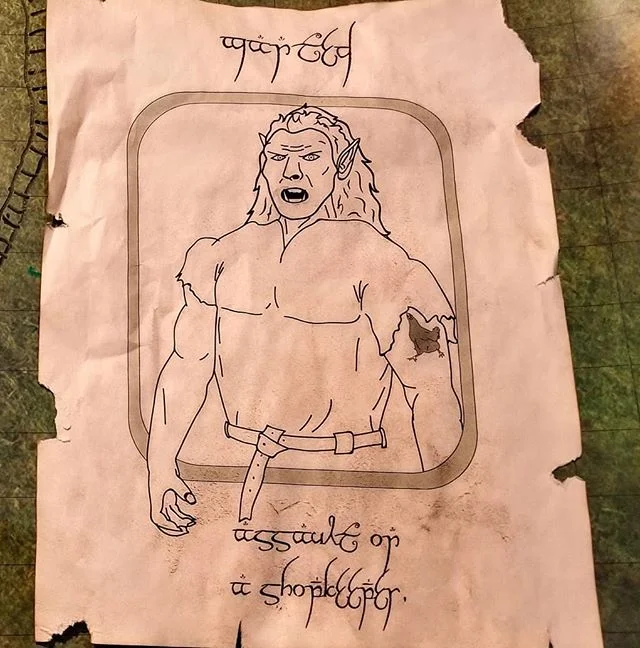 wanted
assault on
a shopkeeper.